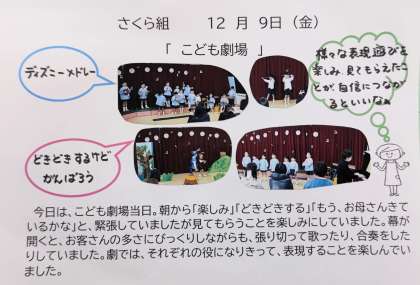 さくら組　12 月 9日（金）
「 こども劇場 」
ディズニーメドレー
様々な表現遊びを
楽しみ、見てもらえたこ
とが、自信につなが
るといいなぁ
どきどきするけど
がんばろう
今日は、こども劇場当日。朝から「楽しみ」「どきどきする」「もう、お母さんきて
いるかな」と、緊張していましたが見てもらうことを楽しみにしていました。幕が
開くと、お客さんの多さにびっくりしながらも、張り切って歌ったり、合奏をした
りしていました。劇では、それぞれの役になりきって、表現することを楽しんでい
ました。